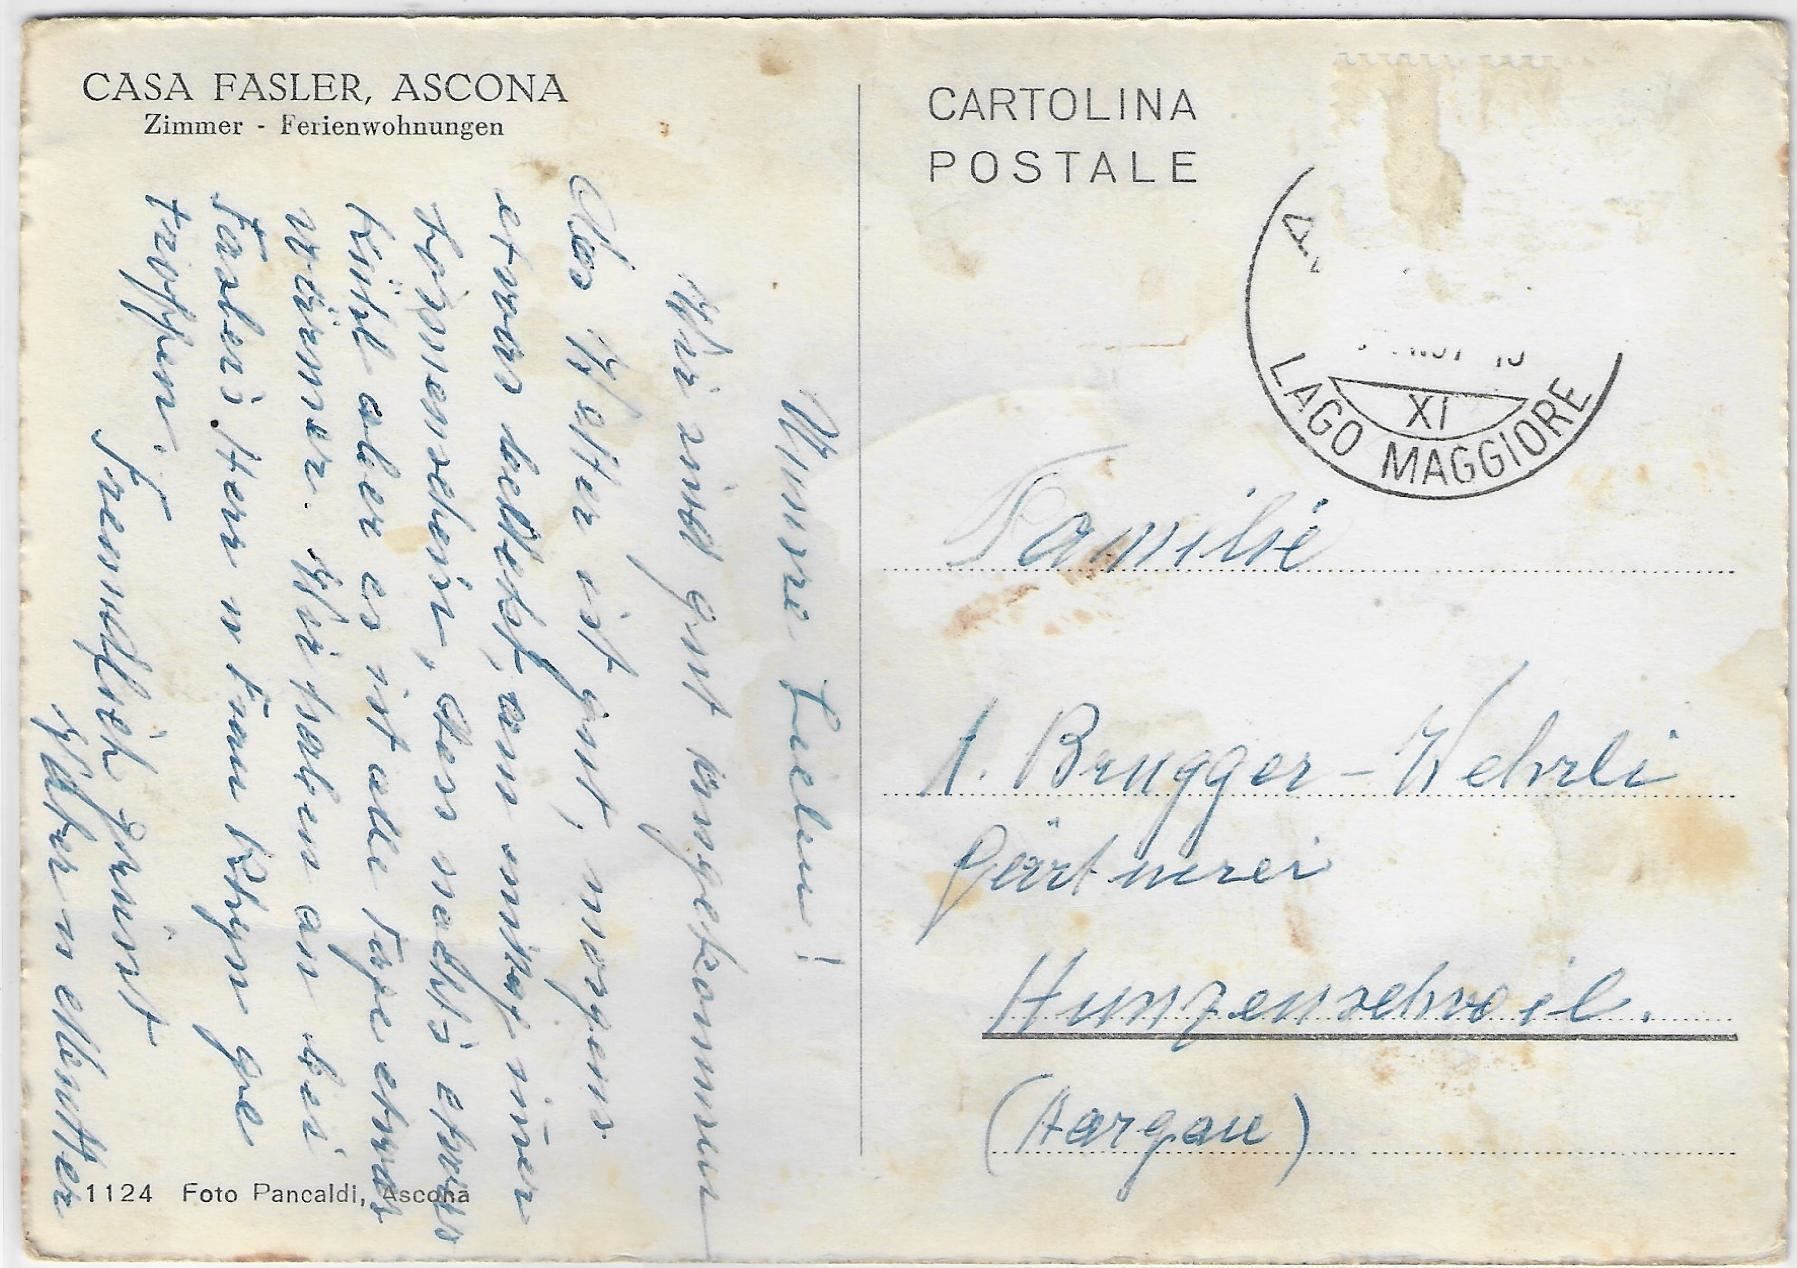 CASA FASLER, ASCONA
Zimmer - Ferienwohnungen
Unsere Lieben!
Wir sind gut angekommen
Das Wetter ist gut, morgens
etwas bedekt, am mittag imer
Sonnenschein, dass nachts etwas
kühl aber es ist alle Tage etwas
wärmer. Wir haben an bei
Faslers Herr u Frau Rhyn ge
troffen.
Freundlich grüsst
Vater u Mutter
1124 Foto Pancaldi, Ascona
CARTOLINA
POSTALE
XI
LAGO MAGGIORE
Familie
A. Brugger-Wehrli
Gärtnerei
Hunzenschwil.
(Aargau)